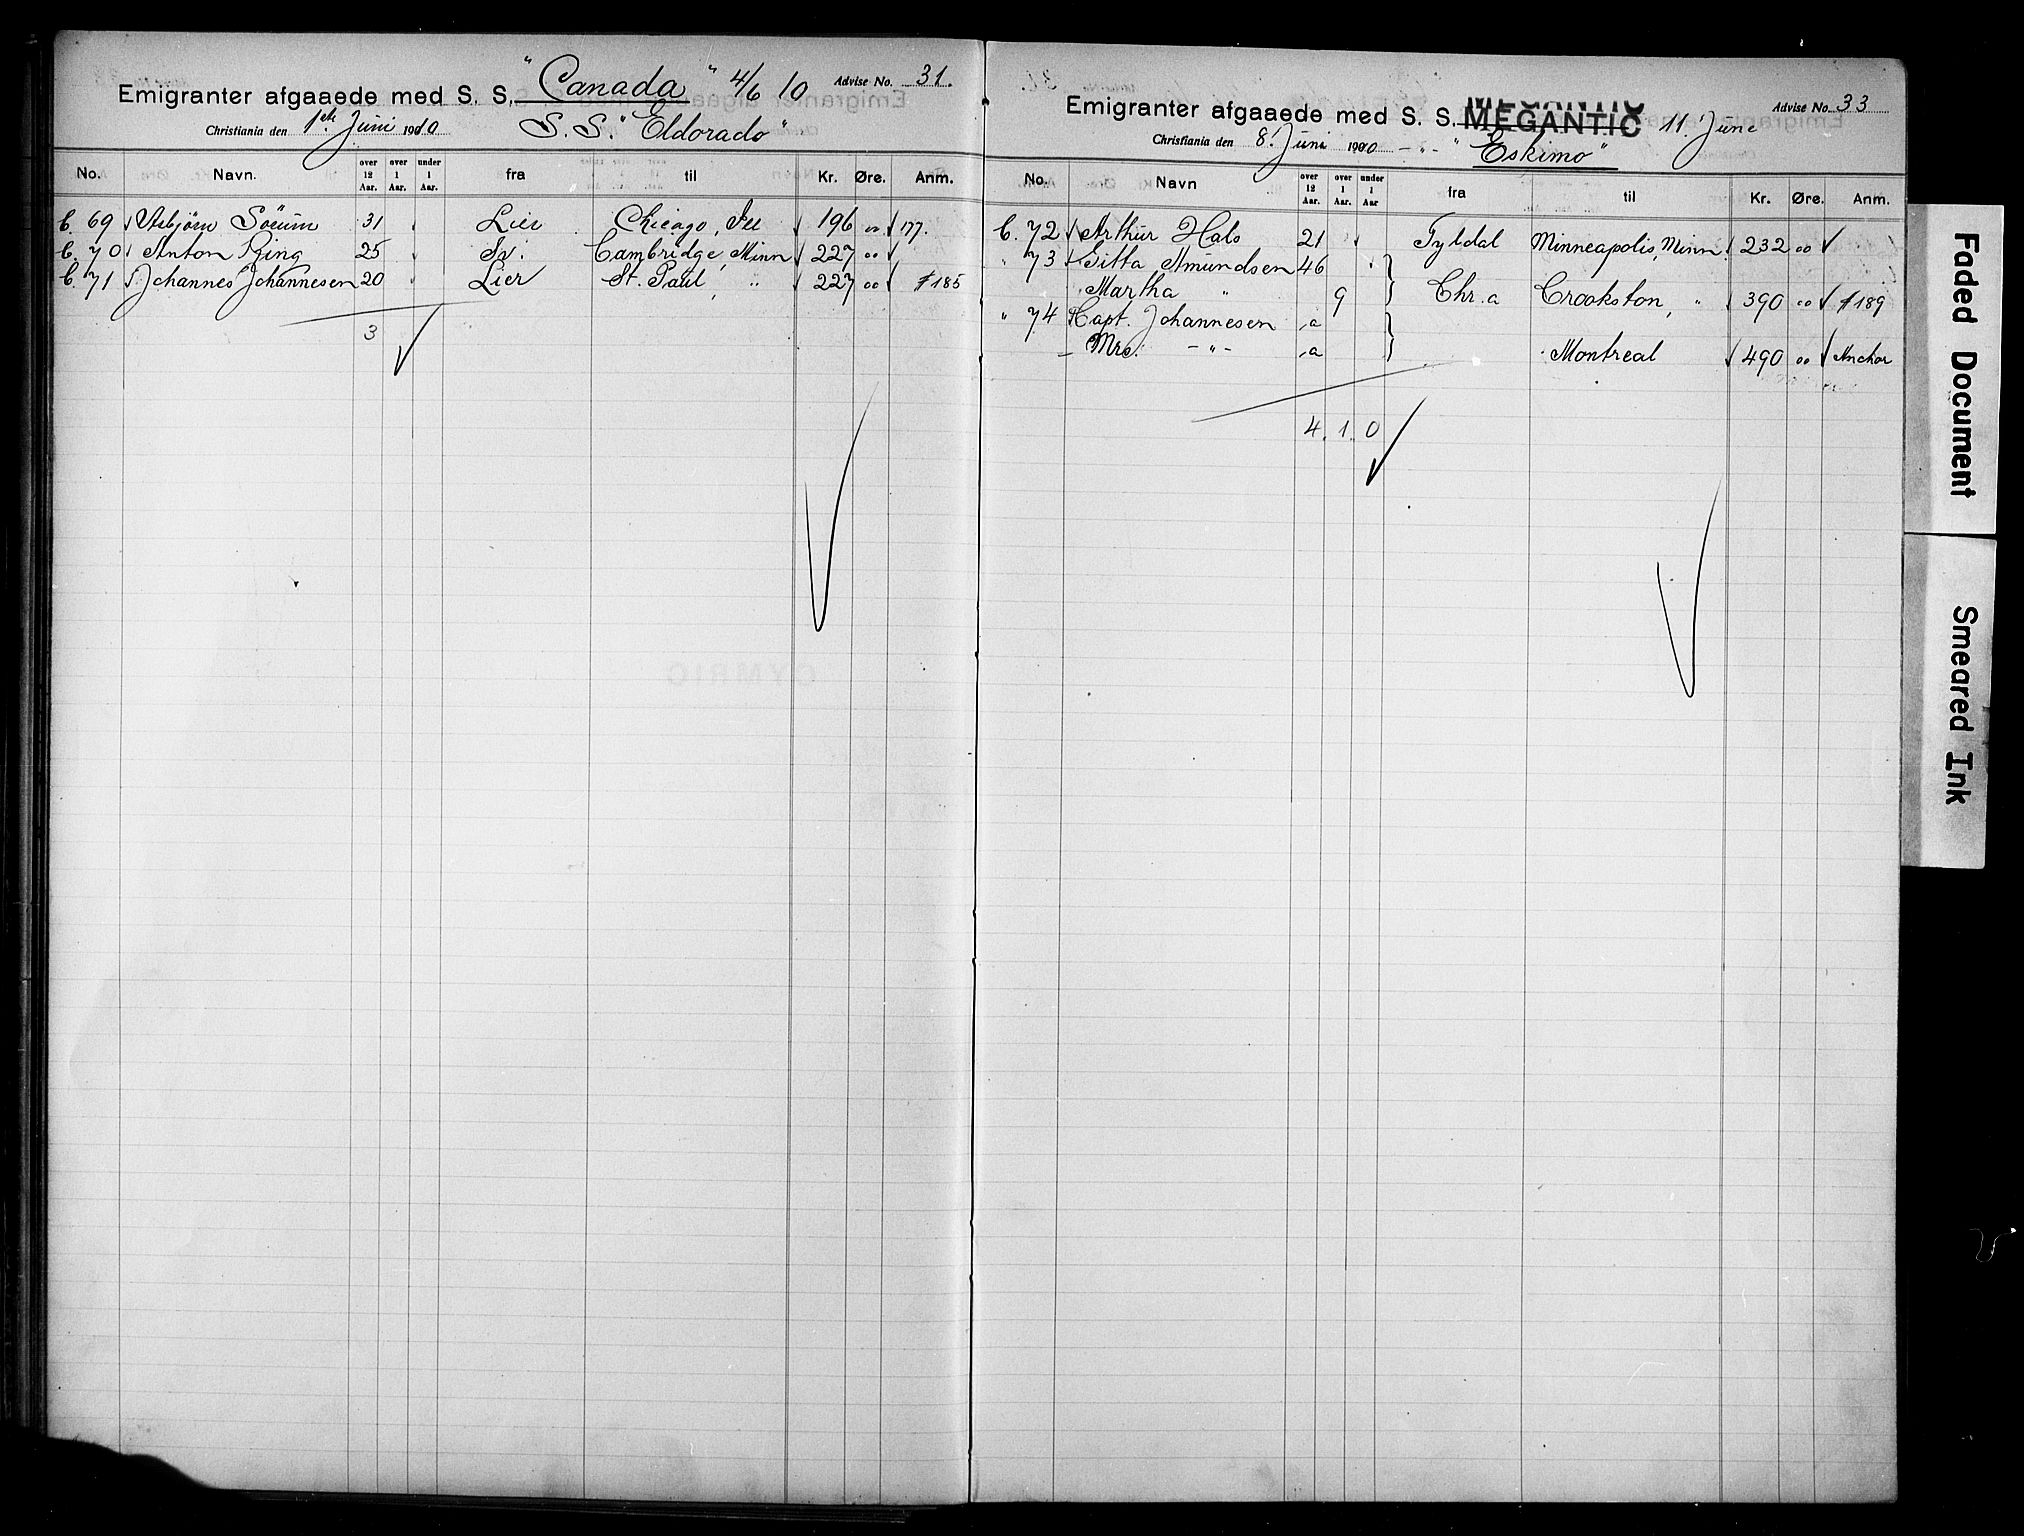 Emigranter afgaaede med S. S. "Canada" 4/6 10 Advise No. 31.
Christiania den 1ste Juni 1910 S.S. "Eldorado"
No. Navn. over 12 Aar. over 1 Aar. under 1 Aar. fra til Kr. Øre. Anm.
C. 69 Asbjörn 31 Lier Chicago, Ill 196 00 177.
C. 70 Anton Ring 25 Cambridge, Minn 227 00
C. 71 Johannes Johannesen 20 Lier St. Paul, " 227 00 185
3
Emigranter afgaaede med S. S. MEGANTIC 11 June Advise No. 33
Christiania den 8. Juni 1910 - " - "Eskimo"
No. Navn over 12 Aar. over 1 Aar. under 1 Aar fra til Kr. Øre. Anm.
C. 72 Arthur Hals 21 Tyldal Minneapolis, Minn. 232 00
" 73 Gitta Amundsen 46
Martha " 9 Chr.a Crookston, " 390 00 189
" 74 Capt. Johannesen a
Mrs. - " - a Montreal 490 00 Anchor
4. 1. 0
Faded Document
Smeared Ink